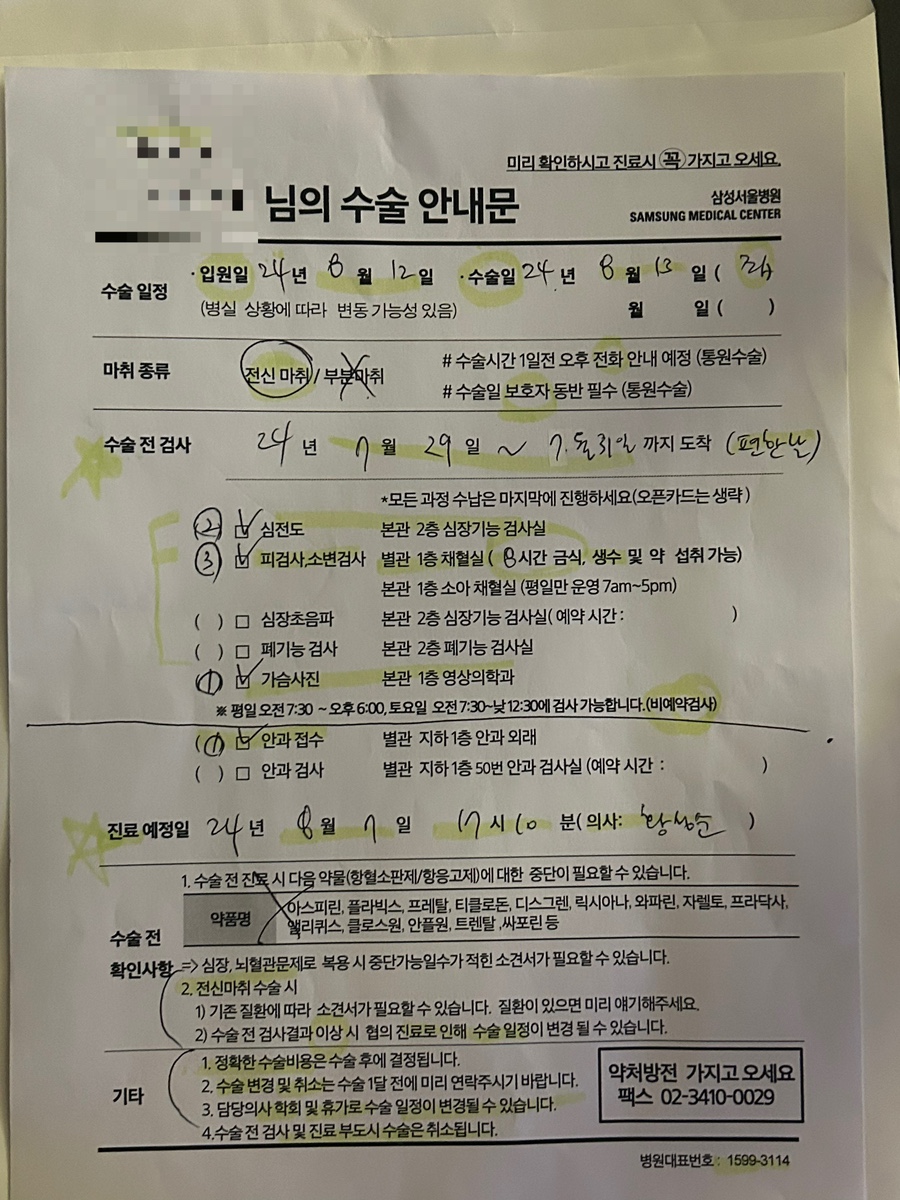 미리 확인하시고 진료시 꼭 가지고 오세요.
님의 수술 안내문
삼성서울병원
SAMSUNG MEDICAL CENTER
수술 일정
· 입원일 24년 8월 12일 · 수술일 24년 8월 13일 ( )
(병실 상황에 따라 변동 가능성 있음) 월 일 ( )
마취 종류
전신 마취 / 부분마취
# 수술시간 1일전 오후 전화 안내 예정 (통원수술)
# 수술일 보호자 동반 필수 (통원수술)
수술 전 검사 24년 7월 29일 ~ 7. 31일 까지 도착 (편한날)
*모든 과정 수납은 마지막에 진행하세요(오픈카드는 생략)
(2) ☑ 심전도 본관 2층 심장기능 검사실
(3) ☑ 피검사,소변검사 별관 1층 채혈실 ( 8시간 금식, 생수 및 약 섭취 가능)
본관 1층 소아 채혈실 (평일만 운영 7am~5pm)
( ) □ 심장초음파 본관 2층 심장기능 검사실( 예약 시간 : )
( ) □ 폐기능 검사 본관 2층 폐기능 검사실
(1) ☑ 가슴사진 본관 1층 영상의학과
※ 평일 오전 7:30 ~ 오후 6:00, 토요일 오전 7:30~낮 12:30에 검사 가능합니다.(비예약검사)
(1) ☑ 안과 접수 별관 지하 1층 안과 외래
( ) □ 안과 검사 별관 지하 1층 50번 안과 검사실 (예약 시간 : )
진료 예정일 24년 8월 7일 17시 10분 ( 의사: )
수술 전
확인사항
1. 수술 전 진료 시 다음 약물(항혈소판제/항응고제)에 대한 중단이 필요할 수 있습니다.
약품명
아스피린, 플라빅스, 프레탈, 티클로돈, 디스그렌, 릭시아나, 와파린, 자렐토, 프라닥사,
앨리퀴스, 클로스원, 안플원, 트렌탈 ,싸포린 등
=> 심장, 뇌혈관문제로 복용 시 중단가능일수가 적힌 소견서가 필요할 수 있습니다.
2. 전신마취 수술 시
1) 기존 질환에 따라 소견서가 필요할 수 있습니다. 질환이 있으면 미리 얘기해주세요.
2) 수술 전 검사결과 이상 시 협의 진료로 인해 수술 일정이 변경 될 수 있습니다.
기타
1. 정확한 수술비용은 수술 후에 결정됩니다.
2. 수술 변경 및 취소는 수술 1달 전에 미리 연락주시기 바랍니다.
3. 담당의사 학회 및 휴가로 수술 일정이 변경될 수 있습니다.
4.수술 전 검사 및 진료 부도시 수술은 취소됩니다.
약처방전 가지고 오세요
팩스 02-3410-0029
병원대표번호 : 1599-3114